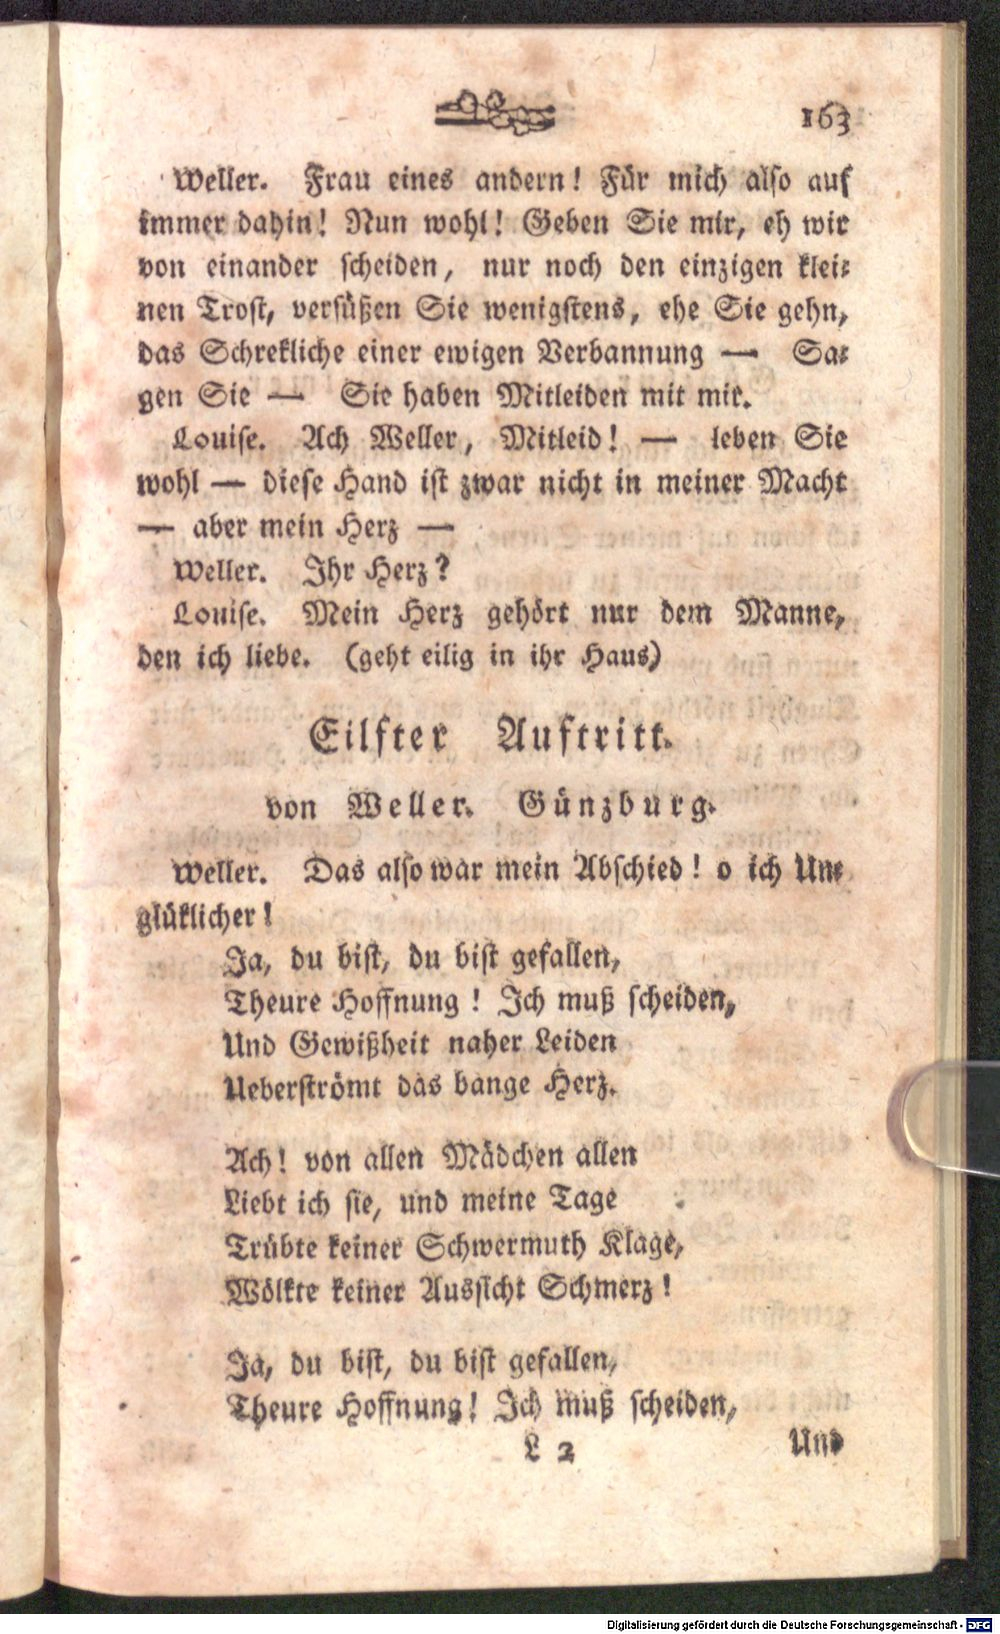 163
Weller. Frau eines andern! Für mich also auf
immer dahin! Nun wohl! Geben Sie mir, eh wir
von einander scheiden, nur noch den einzigen klei-
nen Trost, versüßen Sie wenigstens, ehe Sie gehn,
das Schrekliche einer ewigen Verbannung — Sa-
gen Sie — Sie haben Mitleiden mit mir.
Louise. Ach Weller, Mitleid! — leben Sie
wohl — diese Hand ist zwar nicht in meiner Macht
— aber mein Herz —
Weller. Ihr Herz?
Louise. Mein Herz gehört nur dem Manne,
den ich liebe. (geht eilig in ihr Haus)
Eilfter Auftritt.
von Weller. Günzburg.
Weller. Das also war mein Abschied! o ich Un-
glüklicher!
Ja, du bist, du bist gefallen,
Theure Hoffnung! Ich muß scheiden,
Und Gewißheit naher Leiden
Ueberströmt das bange Herz.
Ach! von allen Mädchen allen
Liebt ich sie, und meine Tage
Trübte keiner Schwermuth Klage,
Wölkte keiner Aussicht Schmerz!
Ja, du bist, du bist gefallen,
Theure Hoffnung! Ich muß scheiden,
L 2 Und
Digitalisierung gefördert durch die Deutsche Forschungsgemeinschaft - DFG